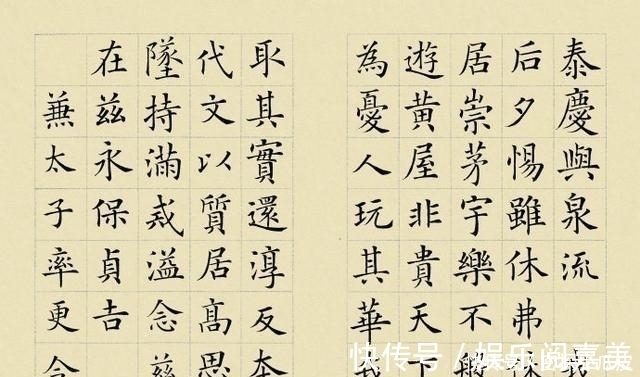 泰慶與泉流
后夕惕雖休弗
居崇茅宇樂不
遊黃屋非貴天下
為憂人玩其華我
取其實還淳反本
代文以質居高思
墜持滿戒溢念
在茲永保貞吉
兼太子率更令
快传号 / 娱乐阅嘉美